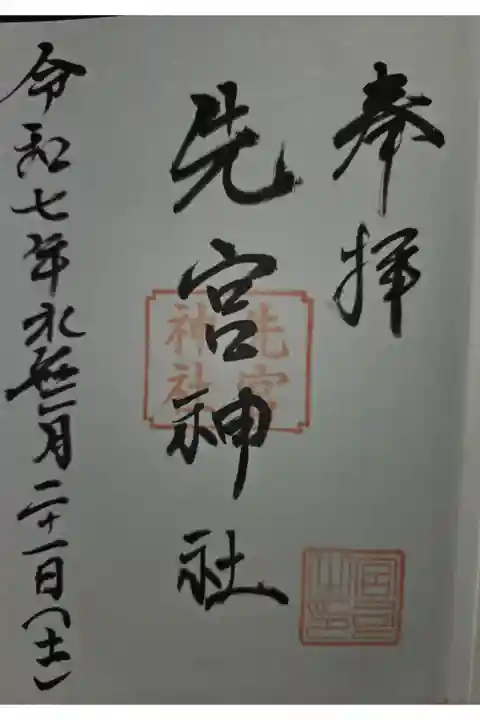 奉拝
先宮神社
先宮
神社
宮司
之印
令和七年水無月二十一日（土）